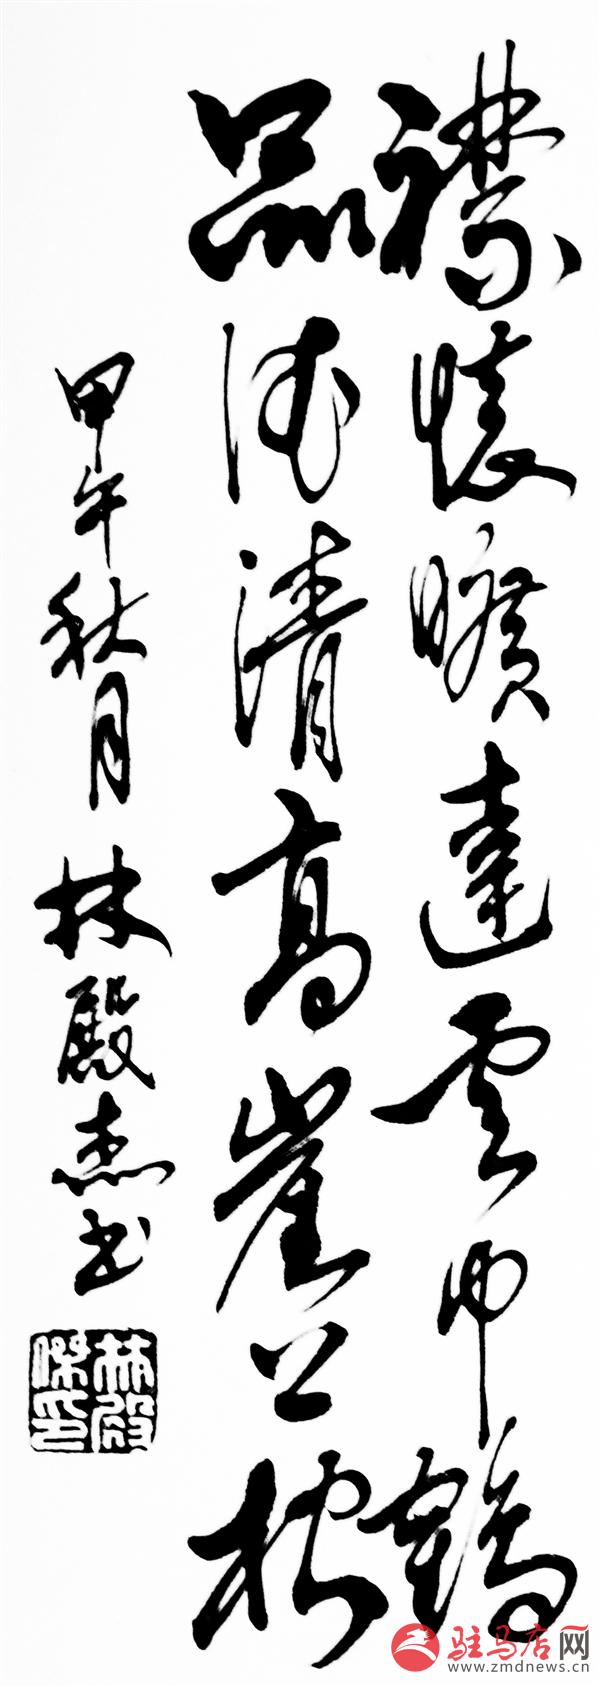 襟怀旷达云中鹤
品德清高崖上松
甲午秋月 林殿杰书
林殿杰印
驻马店网
www.zmdnews.cn